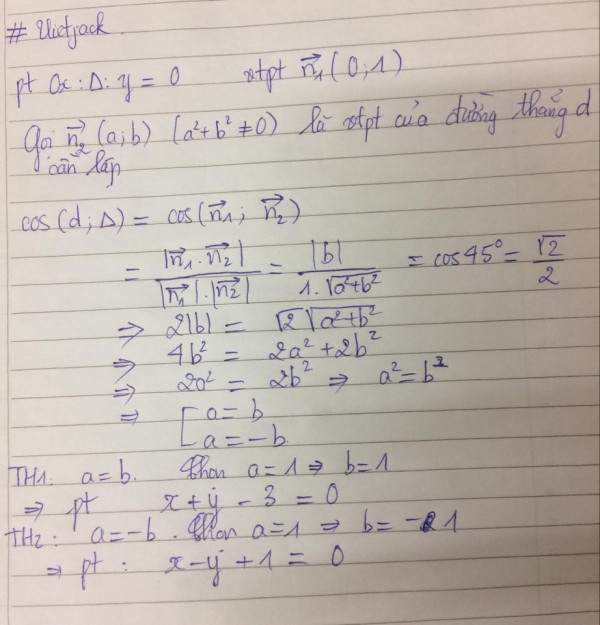 # Vietjack.
pt Ox: Δ: y = 0 vtpt n⃗₁ (0; 1)
Gọi n⃗₂ (a; b) (a² + b² ≠ 0) là vtpt của đường thẳng d
cần lập
cos(d; Δ) = cos(n⃗₁; n⃗₂)
= |n⃗₁ . n⃗₂| / |n⃗₁| . |n⃗₂| = |b| / 1.√(a² + b²) = cos 45° = √2 / 2
⇒ 2|b| = √2 √(a² + b²)
⇒ 4b² = 2a² + 2b²
⇒ 2a² = 2b² ⇒ a² = b²
⇒ [ a = b
a = -b
TH1: a = b. Chọn a = 1 ⇒ b = 1
⇒ pt x + y - 3 = 0
TH2: a = -b. Chọn a = 1 ⇒ b = -1
⇒ pt: x - y + 1 = 0